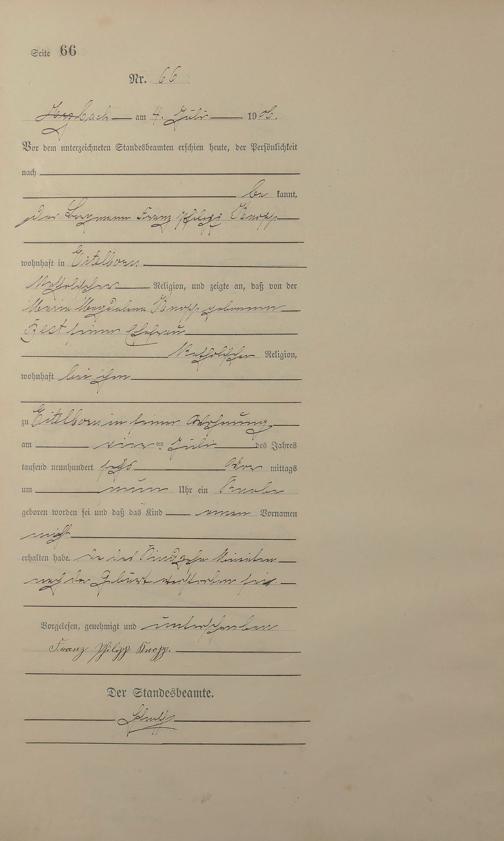 Seite 66
Nr. 66
am 4. Juli 1906.
Vor dem unterzeichneten Standesbeamten erschien heute, der Persönlichkeit
nach
be kannt,
der Bergmann Franz Philipp Knopp
wohnhaft in Eitelborn
katholischer Religion, und zeigte an, daß von der
Maria Magdalena Knopp geborenen
seiner Ehefrau
katholischer Religion,
wohnhaft bei ihm
zu Eitelborn in seiner Wohnung
am vier ten Juli des Jahres
tausend neunhundert sechs Vor mittags
um neun Uhr ein Knabe
geboren worden sei und daß das Kind einen Vornamen
nicht
erhalten habe. da das Kind zehn Minuten
nach der Geburt verstorben sei
Vorgelesen, genehmigt und unterschrieben
Franz Philipp Knopp.
Der Standesbeamte.